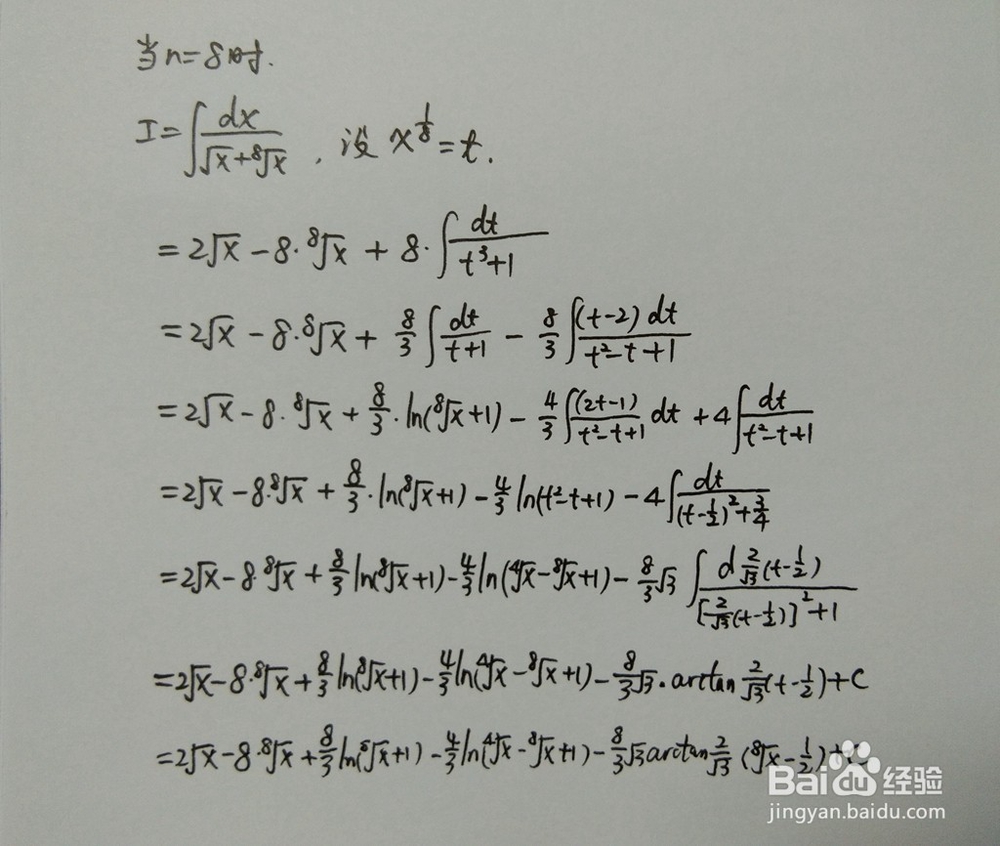 当n=8时.
I=∫dx/(√x+⁸√x) , 设 x^(1/8)=t.
=2√x-8·⁸√x+8·∫dt/(t³+1)
=2√x-8·⁸√x+8/3∫dt/(t+1)-8/3∫(t-2)dt/(t²-t+1)
=2√x-8·⁸√x+8/3·ln(⁸√x+1)-4/3∫(2t-1)/(t²-t+1)dt+4∫dt/(t²-t+1)
=2√x-8·⁸√x+8/3·ln(⁸√x+1)-4/3ln(t²-t+1)-4∫dt/((t-1/2)²+3/4)
=2√x-8⁸√x+8/3ln(⁸√x+1)-4/3ln(⁴√x-⁸√x+1)-8/3√3∫d2/√3(t-1/2)/([2/√3(t-1/2)]²+1)
=2√x-8·⁸√x+8/3ln(⁸√x+1)-4/3ln(⁴√x-⁸√x+1)-8/3√3·arctan2/√3(t-1/2)+C
=2√x-8·⁸√x+8/3ln(⁸√x+1)-4/3ln(⁴√x-⁸√x+1)-8/3√3arctan2/√3(⁸√x-1/2)+C
Baidu经验
jingyan.baidu.com